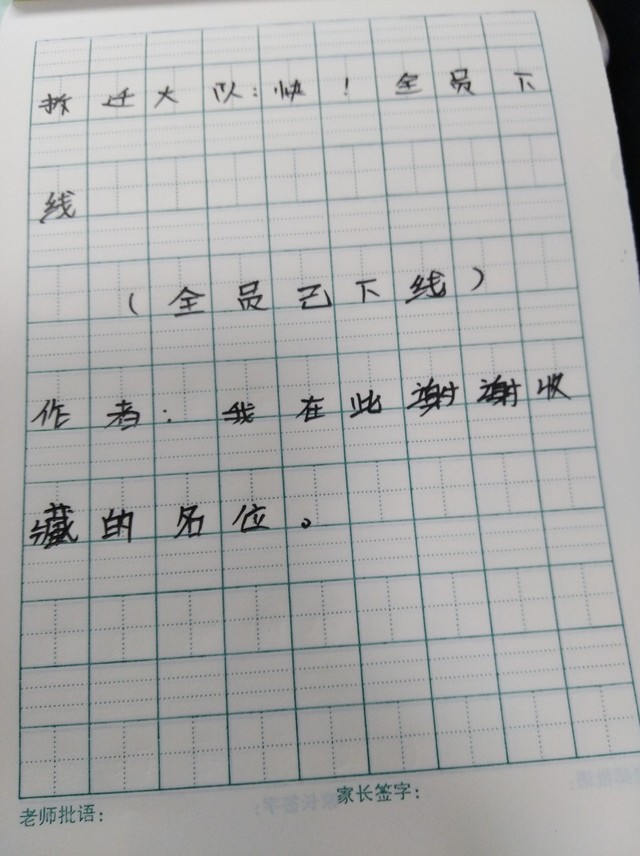 拆迁大队：快！全员下
线
（全员已下线）
作者：我在此谢谢收
藏的各位。
老师批语：
家长签字：